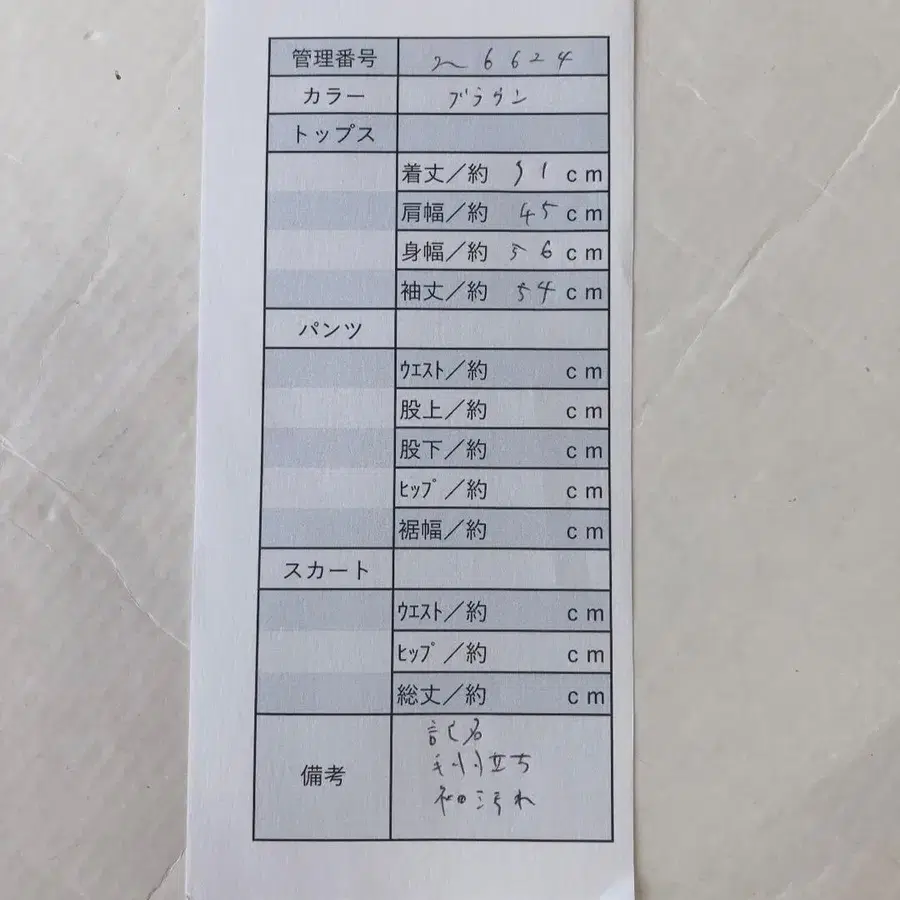 管理番号 6624
カラー ブラウン
トップス
着丈／約 91 cm
肩幅／約 45 cm
身幅／約 56 cm
袖丈／約 54 cm
パンツ
ｳｴｽﾄ／約 cm
股上／約 cm
股下／約 cm
ﾋｯﾌﾟ／約 cm
裾幅／約 cm
スカート
ｳｴｽﾄ／約 cm
ﾋｯﾌﾟ／約 cm
総丈／約 cm
備考
記名
毛羽立ち
袖汚れ